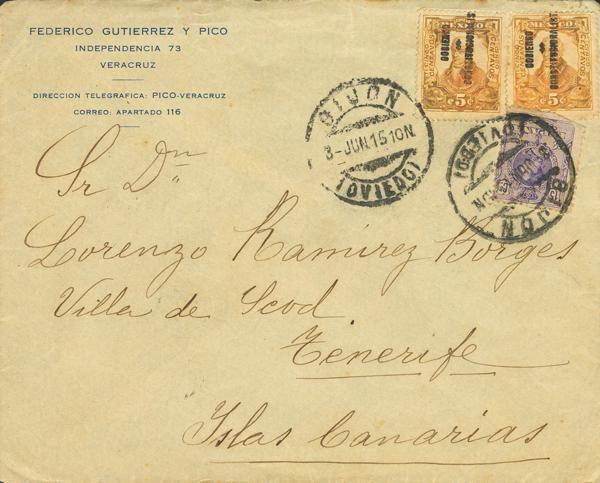 FEDERICO GUTIERREZ Y PICO
INDEPENDENCIA 73
VERACRUZ
DIRECCION TELEGRAFICA: PICO-VERACRUZ
CORREO: APARTADO 116
MEXICO
GOBIERNO CONSTITUCIONALISTA
5 CENTAVOS 5
MEXICO
GOBIERNO CONSTITUCIONALISTA
5 CENTAVOS 5
GIJON
3-JUN.15 10N
(OVIEDO)
GIJON
(OVIEDO)
15
Sr Dn
Lorenzo Ramirez Borges
Villa de Scod
Tenerife
Islas Canarias